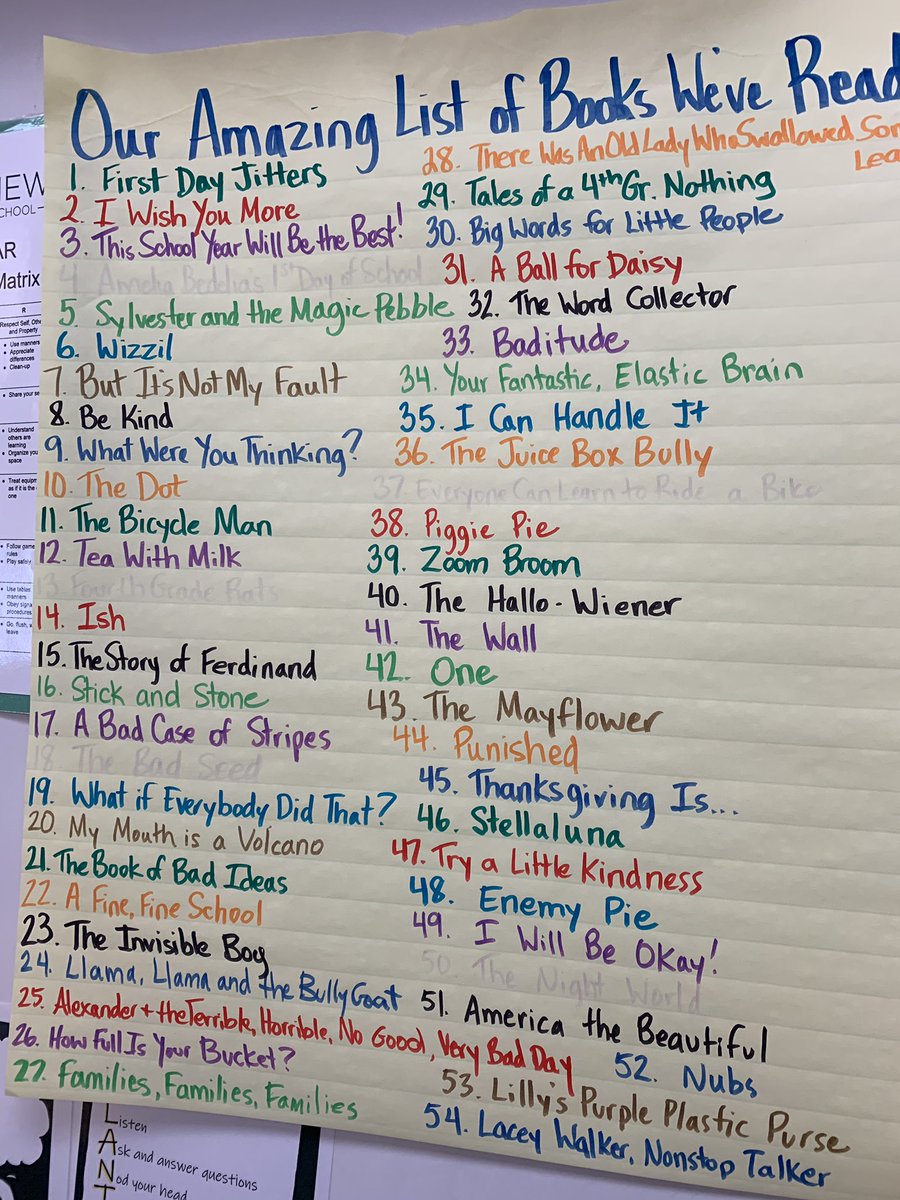 Our Amazing List of Books We've Read
1. First Day Jitters
2. I Wish You More
3. This School Year Will Be the Best!
4. Amelia Bedelia's 1st Day of School
5. Sylvester and the Magic Pebble
6. Wizzil
7. But It's Not My Fault
8. Be Kind
9. What Were You Thinking?
10. The Dot
11. The Bicycle Man
12. Tea With Milk
13 Fourth Grade Rats
14. Ish
15. The Story of Ferdinand
16. Stick and Stone
17. A Bad Case of Stripes
18. The Bad Seed
19. What if Everybody Did That?
20. My Mouth is a Volcano
21. The Book of Bad Ideas
22. A Fine, Fine School
23. The Invisible Boy
24. Llama, Llama and the Bully Goat
25. Alexander + the Terrible, Horrible, No Good, Very Bad Day
26. How Full Is Your Bucket?
27. Families, Families, Families
28. There Was An Old Lady Who Swallowed Som
Lea
29. Tales of a 4th Gr. Nothing
30. Big Words for Little People
31. A Ball for Daisy
32. The Word Collector
33. Baditude
34. Your Fantastic, Elastic Brain
35. I Can Handle It
36. The Juice Box Bully
37. Everyone Can Learn to Ride a Bike
38. Piggie Pie
39. Zoom Broom
40. The Hallo-Wiener
41. The Wall
42. One
43. The Mayflower
44. Punished
45. Thanksgiving Is...
46. Stellaluna
47. Try a Little Kindness
48. Enemy Pie
49. I Will Be Okay!
50. The Night World
51. America the Beautiful
52. Nubs
53. Lilly's Purple Plastic Purse
54. Lacey Walker, Nonstop Talker
EW
SCHOOL
AR
Matrix
R
Respect Self, Othe
and Property
• Use manners
• Appreciate
differences
• Clean-up
• Share your se
• Understand
others are
learning
• Organize you
space
• Treat equipm
as if it is the
one
• Follow game
rules
• Play safely
• Use tables
manners
• Obey signa
procedures
• Go, flush, w
leave
Listen
Ask and answer questions
Nod your head
T